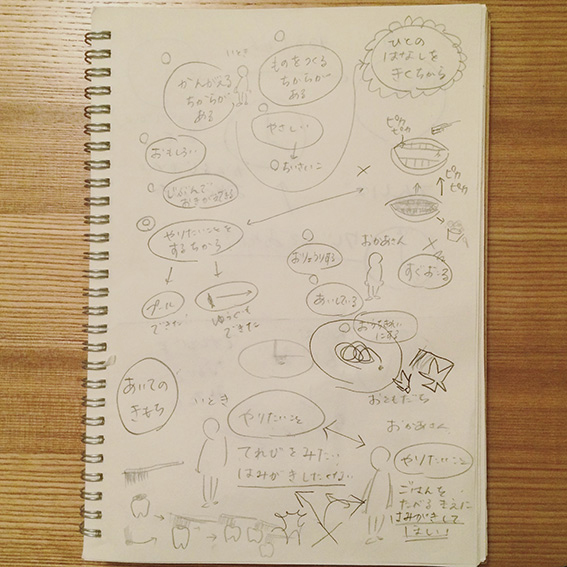 いとき
かんがえる
ちからが
ある
ものをつくる
ちからが
ある
ひとの
はなしを
きくちから
やさしい
ちいさいこ
おもしろい
じぶんで
おきがえできる
ピカ
ピカ
ピカ
ピカ
やりたいことを
するちから
おかあさん
おりょうりする
すぐおこる
あいしている
プール
できた
ゆうぐも
できた
おうちきれい
にする
おともだち
あいての
きもち
いとき
やりたいこと
てれびをみたい
はみがきしたくない
おかあさん
やりたいこと
ごはんを
たべるまえに
はみがきして
ほしい